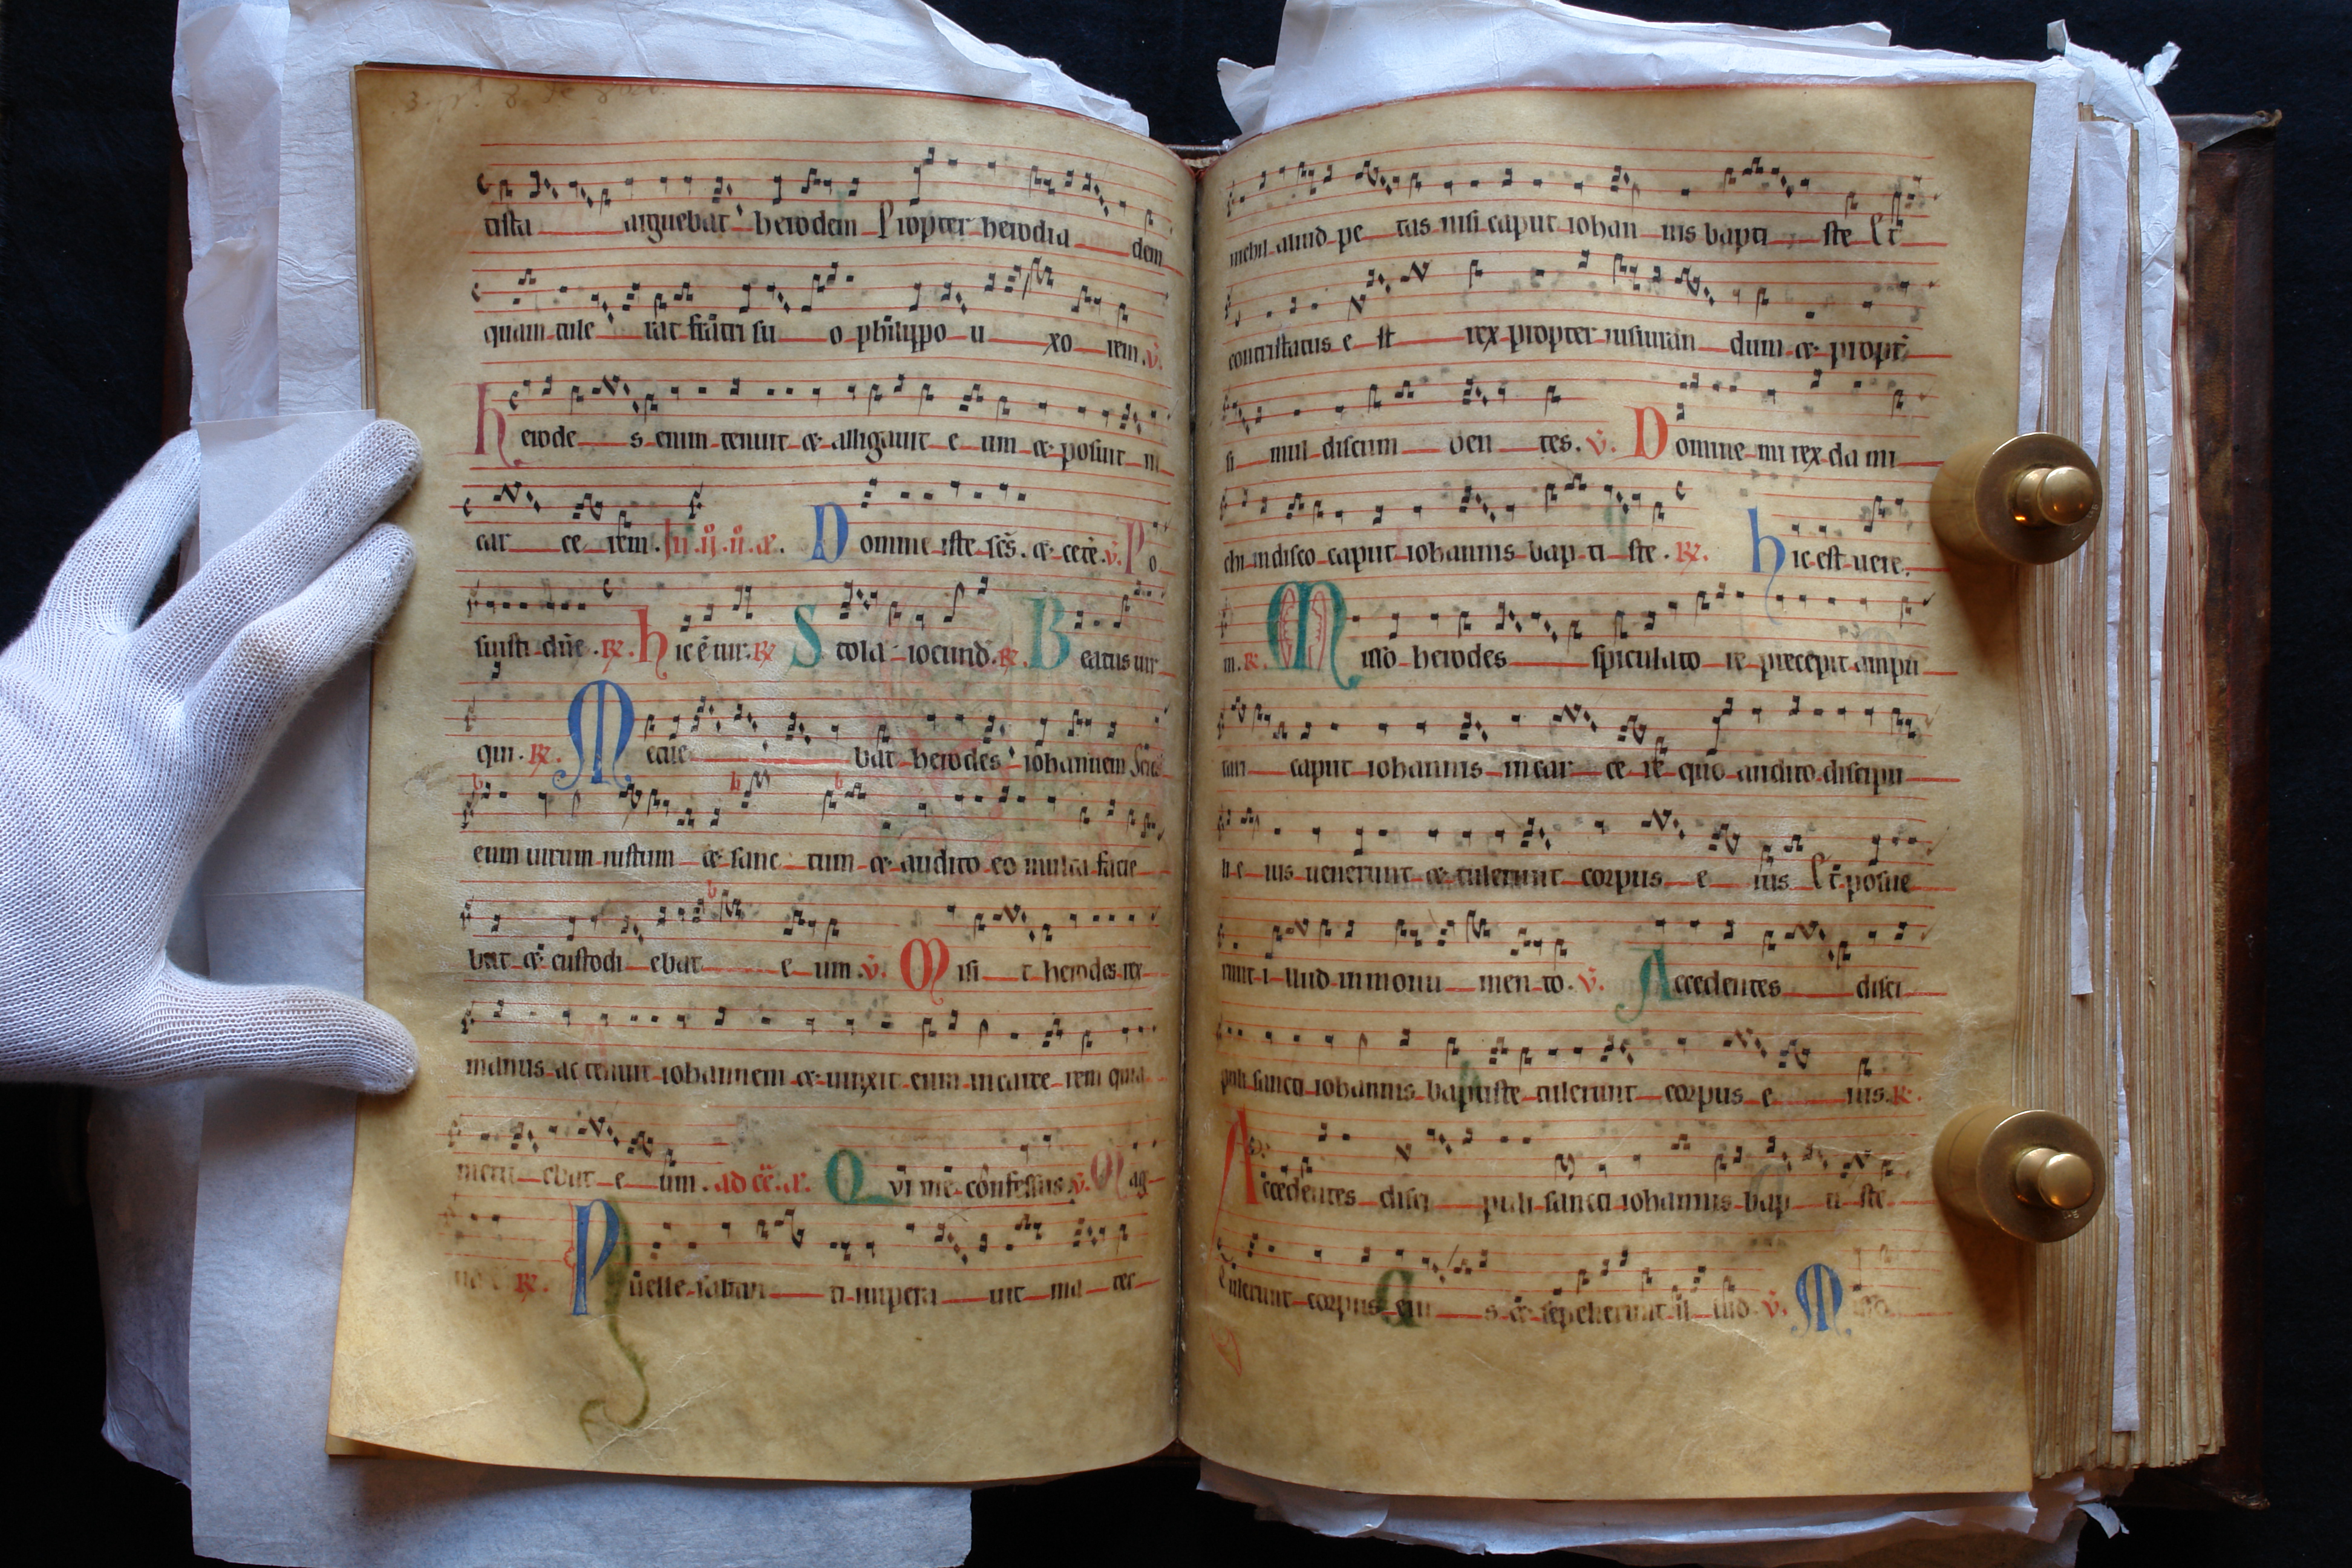 tista arguebat herodem Propter herodia dem
quam tule rat fratri su o philippo u xo rem. v.
herode s enim tenuit et alligauit e um et posuit in
car ce rem. Domine iste scs. et cete. v. Po
suisti dne. R. hic e uir. R. Stola iocund. R. Beatus uir
qui. R. Metue bat herodes iohannem
eum uirum iustum et sanc tum et audito eo multa facie
bat et custodi ebat e um. v. Misi t herodes rex
manus ac tenuit iohannem et uinxit eum in carce rem quia
metu ebat e um. Qui me confessus. v. Mag
R. Puelle saltan ti impera uit ma ter
mchi aliud pe tas nisi caput iohan nis bapti ste Et
contristatus e st rex propter iusiuran dum et propt
si mul discum ben tes. v. Domine mi rex da mi
chi in disco caput iohannis bap ti ste. R. hic est uere.
m. R. Misso herodes spiculato re precepit ampu
tari caput iohannis in car ce re quo audito discipu
li e ius uenerunt et tulerunt corpus e ius Et posue
runt i llud in monu men to. v. Accedentes disci
puli sancti iohannis baptiste tulerunt corpus e ius. R.
Accedentes disci puli sancti iohannis bap ti ste
tulerunt corpus eiu s et sepelierunt il lud. v. Misso